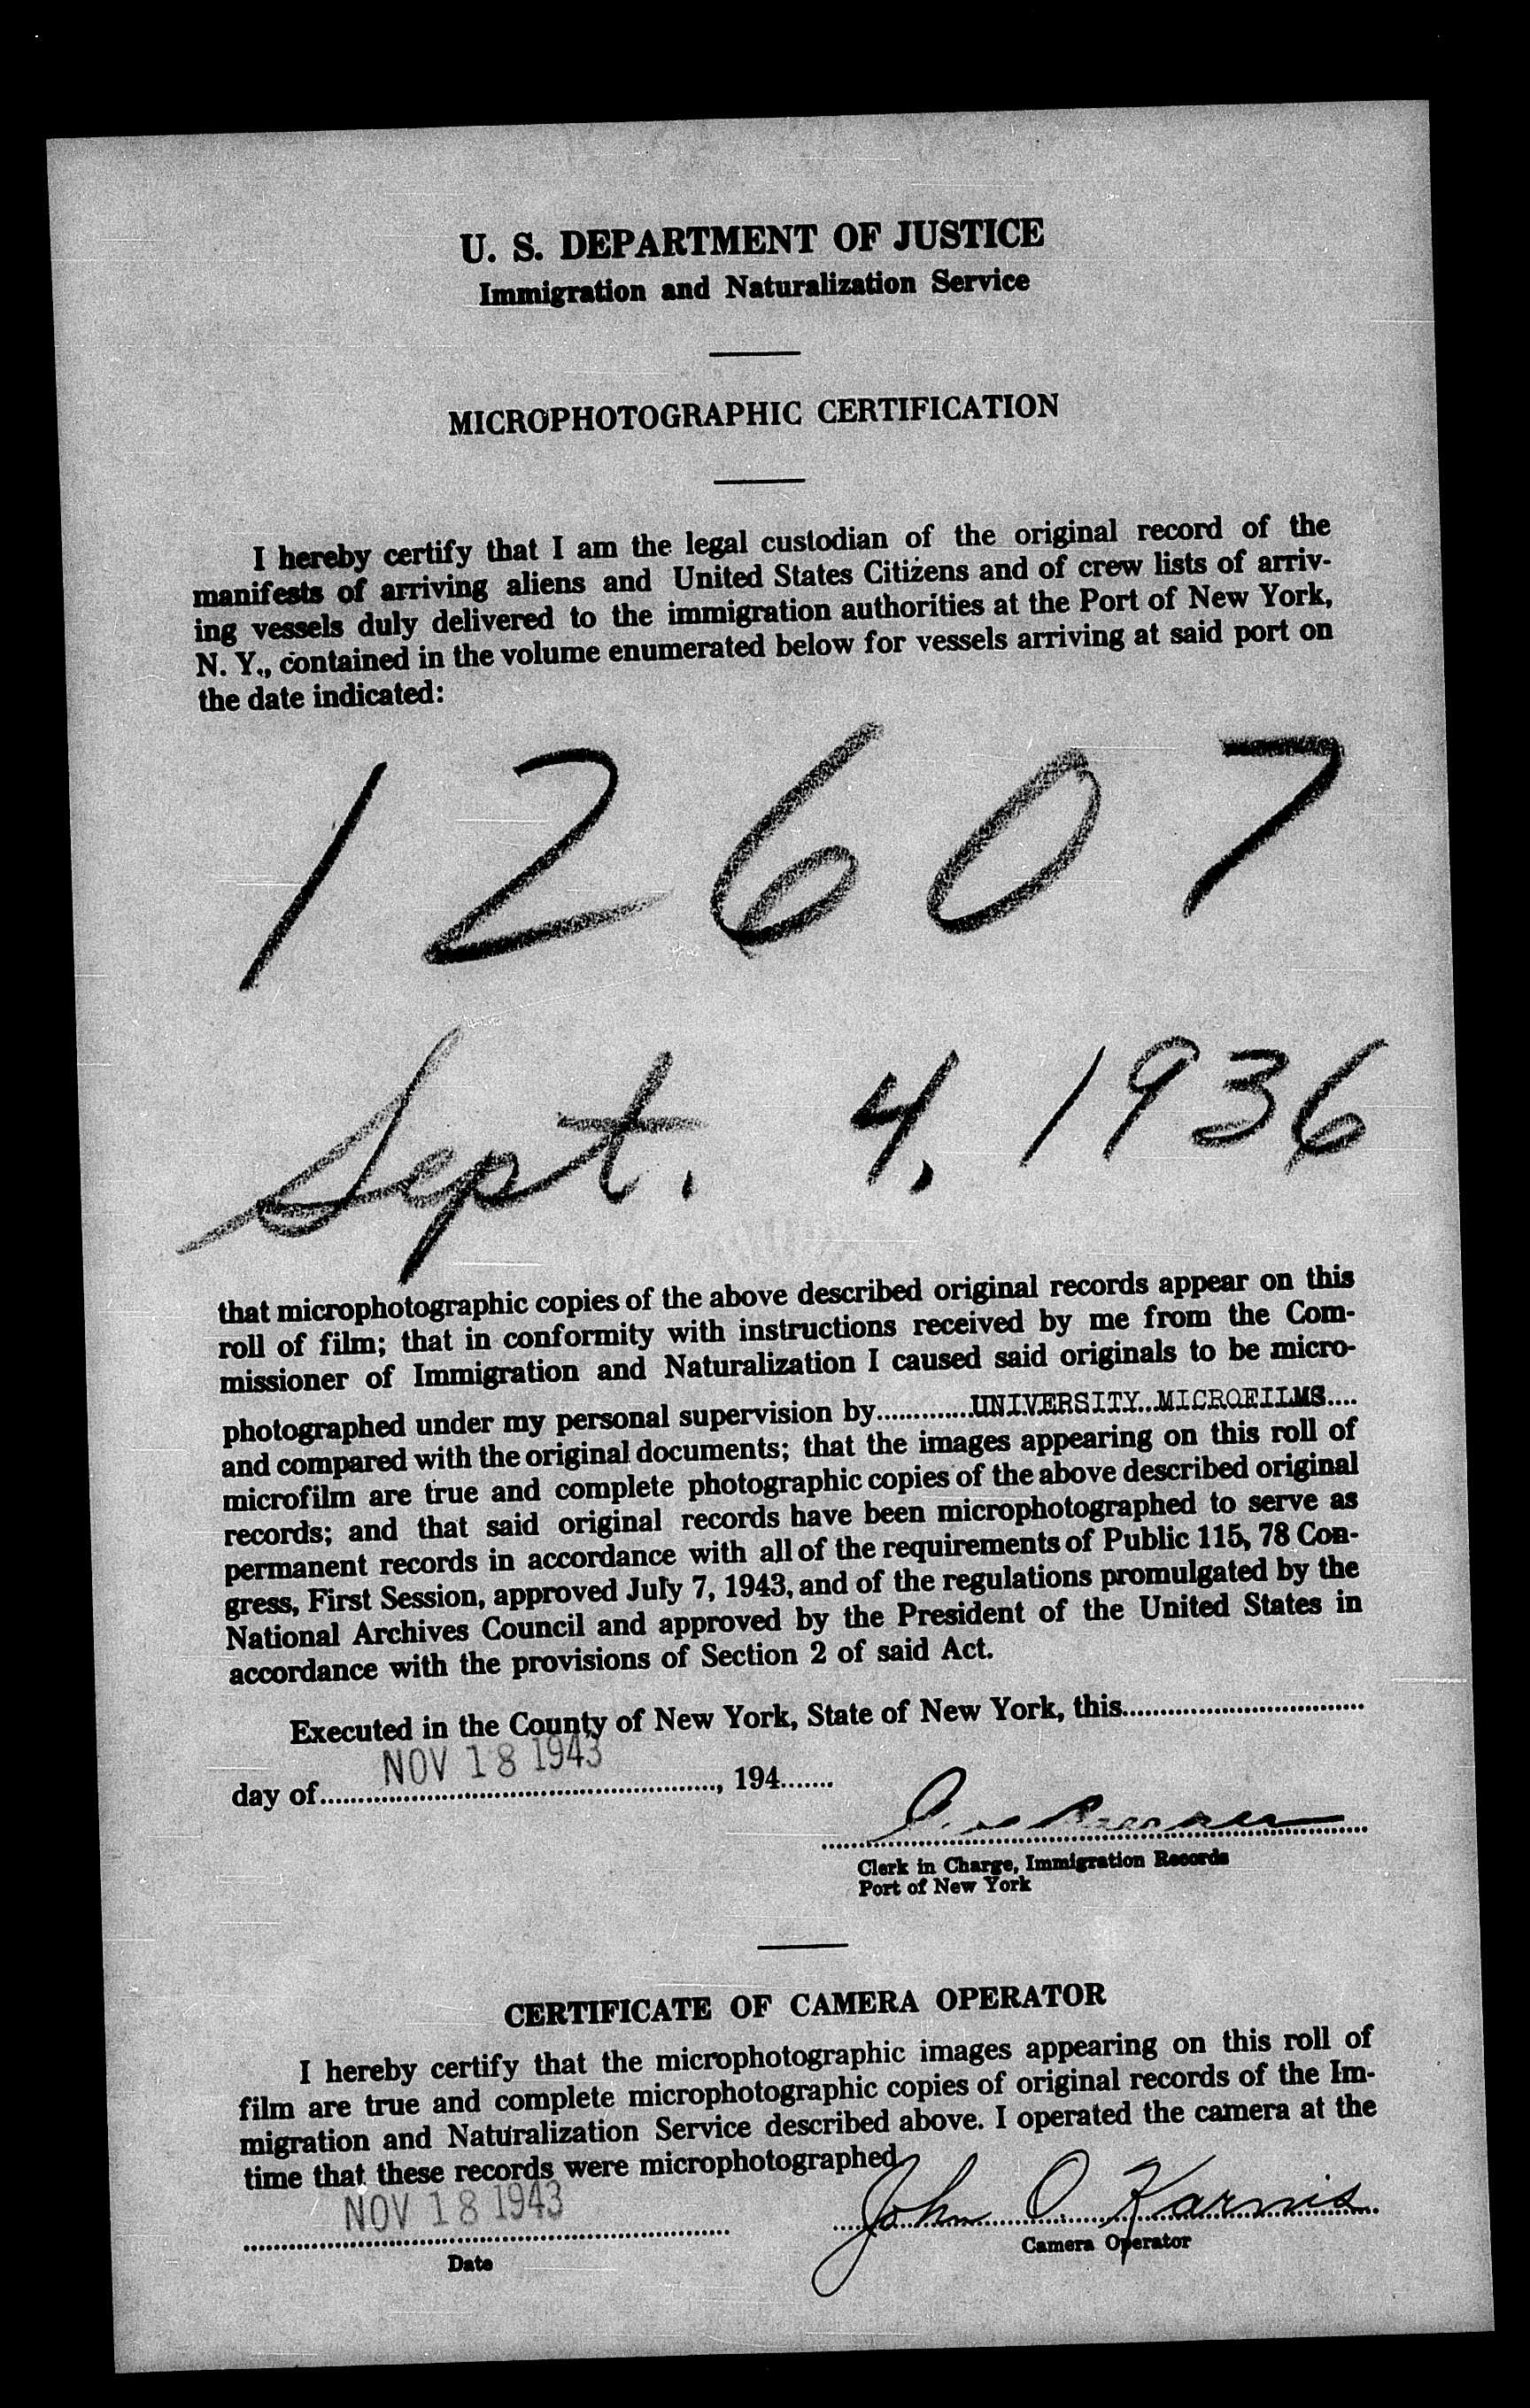 U. S. DEPARTMENT OF JUSTICE
Immigration and Naturalization Service
MICROPHOTOGRAPHIC CERTIFICATION
I hereby certify that I am the legal custodian of the original record of the
manifests of arriving aliens and United States Citizens and of crew lists of arriv-
ing vessels duly delivered to the immigration authorities at the Port of New York,
N. Y., contained in the volume enumerated below for vessels arriving at said port on
the date indicated:
12607
Sept. 4, 1936
that microphotographic copies of the above described original records appear on this
roll of film; that in conformity with instructions received by me from the Com-
missioner of Immigration and Naturalization I caused said originals to be micro-
photographed under my personal supervision by.............UNIVERSITY..MICROFILMS....
and compared with the original documents; that the images appearing on this roll of
microfilm are true and complete photographic copies of the above described original
records; and that said original records have been microphotographed to serve as
permanent records in accordance with all of the requirements of Public 115, 78 Con-
gress, First Session, approved July 7, 1943, and of the regulations promulgated by the
National Archives Council and approved by the President of the United States in
accordance with the provisions of Section 2 of said Act.
Executed in the County of New York, State of New York, this................................
NOV 18 1943
day of...................................................., 194.......
Clerk in Charge, Immigration Records
Port of New York
CERTIFICATE OF CAMERA OPERATOR
I hereby certify that the microphotographic images appearing on this roll of
film are true and complete microphotographic copies of original records of the Im-
migration and Naturalization Service described above. I operated the camera at the
time that these records were microphotographed.
NOV 18 1943
John O. Karnis
Camera Operator
Date